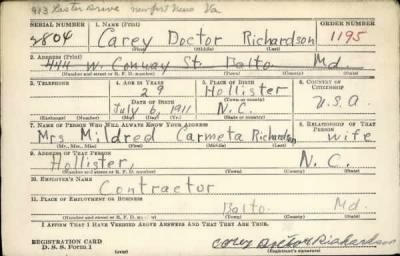 913 Easter Drive Newport News Va
SERIAL NUMBER 1. NAME (Print) ORDER NUMBER
2804 Carey Doctor Richardson 1195
(First) (Middle) (Last)
2. ADDRESS (Print)
444 W. Conway St. Balto Md.
(Number and street or R. F. D. number) (Town) (County) (State)
3. TELEPHONE 4. AGE IN YEARS 5. PLACE OF BIRTH 6. COUNTRY OF CITIZENSHIP
29 Hollister
DATE OF BIRTH (Town or county)
July 6, 1911 N.C. U.S.A.
(Mo.) (Day) (Yr.) (State or country)
7. NAME OF PERSON WHO WILL ALWAYS KNOW YOUR ADDRESS 8. RELATIONSHIP OF THAT PERSON
Mrs Mildred Carmeta Richardson wife
(Mr., Mrs., Miss) (First) (Middle) (Last)
9. ADDRESS OF THAT PERSON
Hollister, N.C.
(Number and street or R. F. D. number) (Town) (County) (State)
10. EMPLOYER'S NAME
Contractor
11. PLACE OF EMPLOYMENT OR BUSINESS
Balto. Md.
(Number and street or R. F. D. number) (Town) (County) (State)
I AFFIRM THAT I HAVE VERIFIED ABOVE ANSWERS AND THAT THEY ARE TRUE.
REGISTRATION CARD
D. S. S. Form 1 Carey Doctor Richardson
(Registrant's signature)